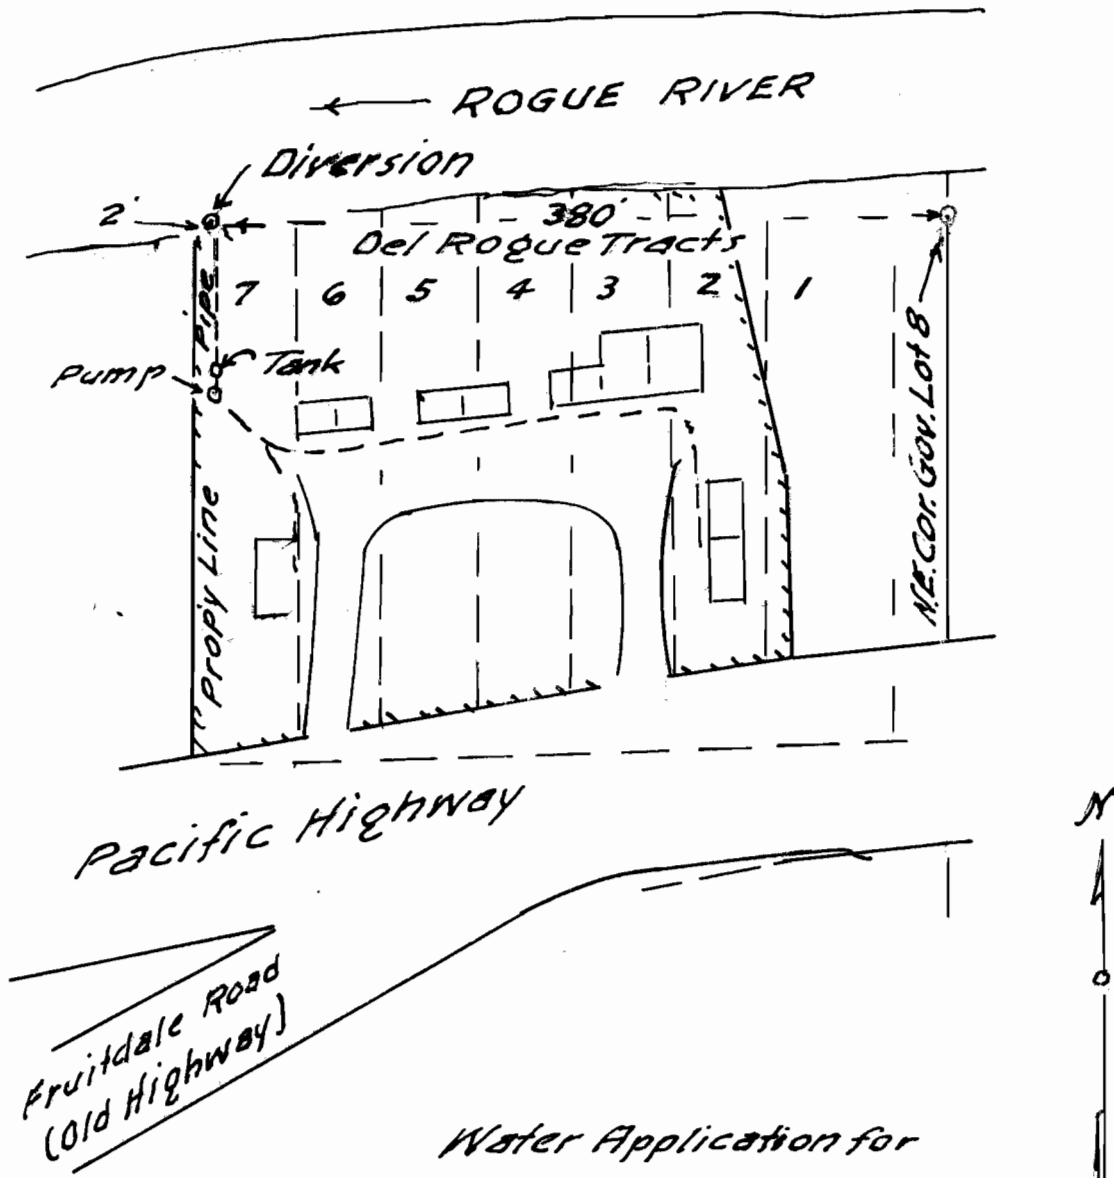 ROGUE RIVER
Diversion
2'
380'
Del Rogue Tracts
7 6 5 4 3 2 1
Pipe
Tank
Pump
Prop'y Line
N.E. Cor. Gov. Lot 8
Pacific Highway
N
Fruitdale Road
(Old Highway)
Water Application for